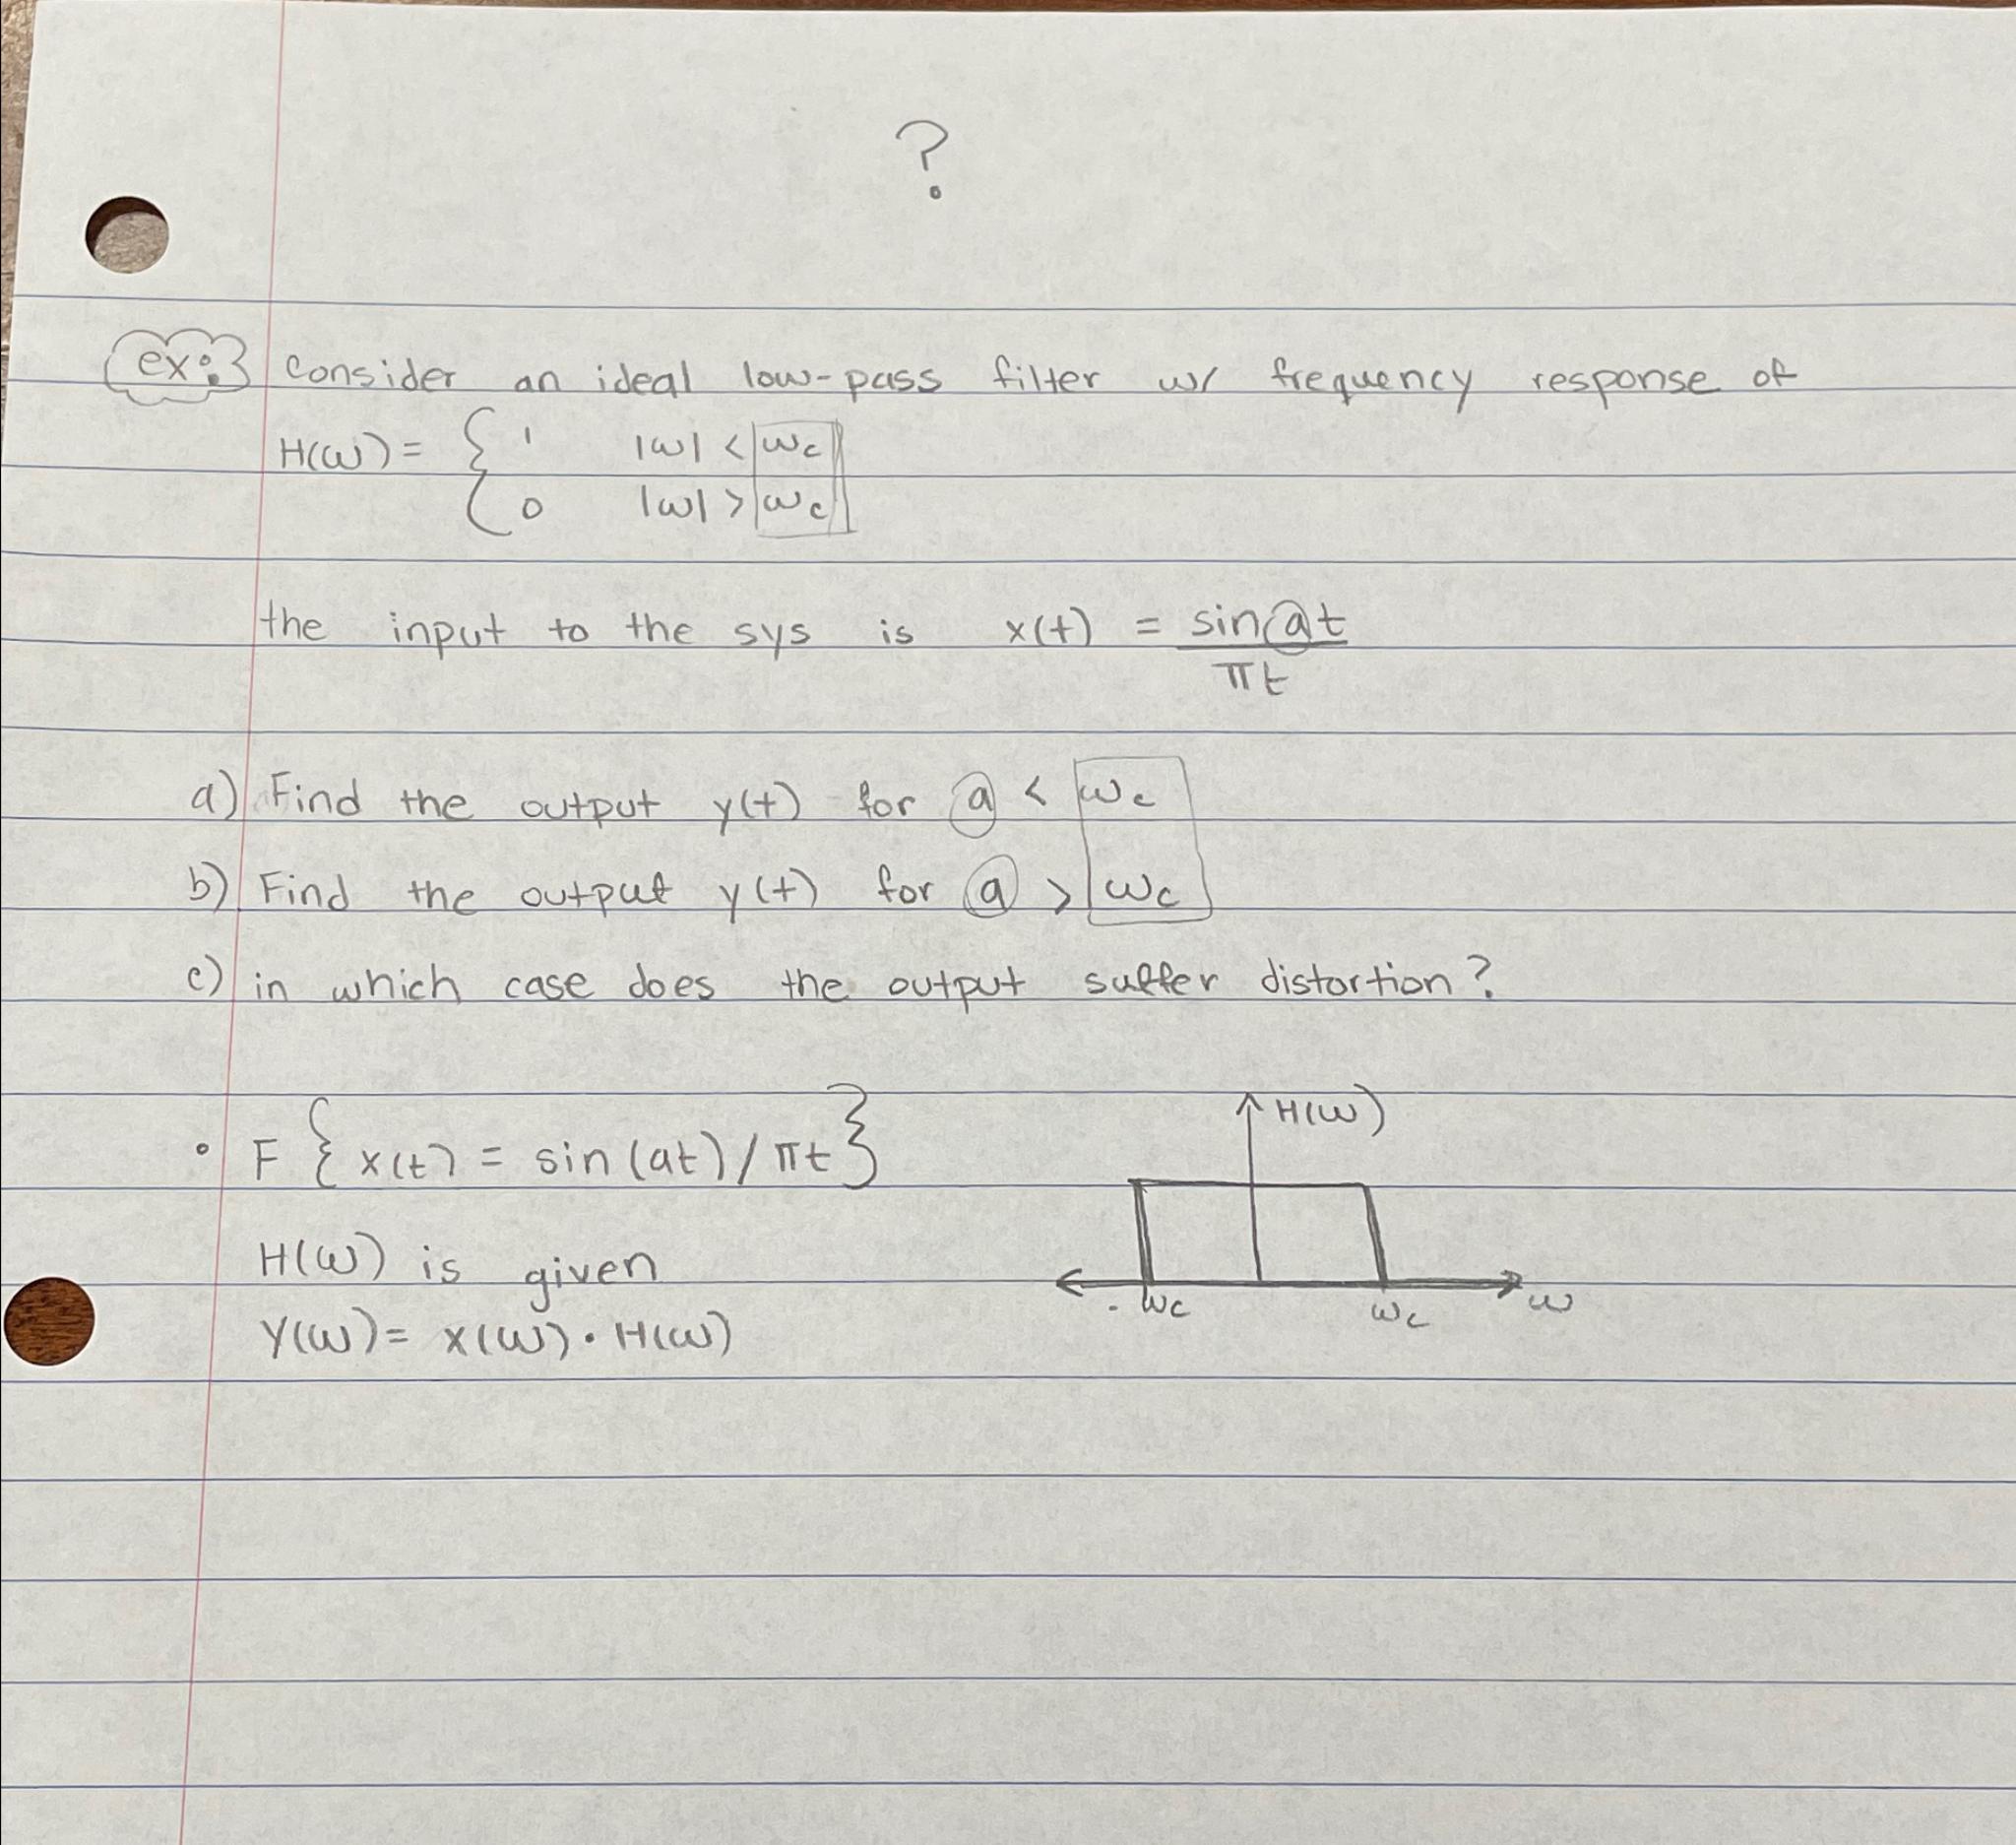 ?
ex: Consider an ideal low-pass filter w/ frequency response of
H(ω) = { 1 |ω| < ωc
0 |ω| > ωc
the input to the sys is x(t) = sin at
πt
a) Find the output y(t) for a < ωc
b) Find the output y(t) for a > ωc
c) in which case does the output suffer distortion?
• F { x(t) = sin (at) / πt }
H(ω)
H(ω) is given
-ωc ωc ω
Y(ω) = X(ω) • H(ω)